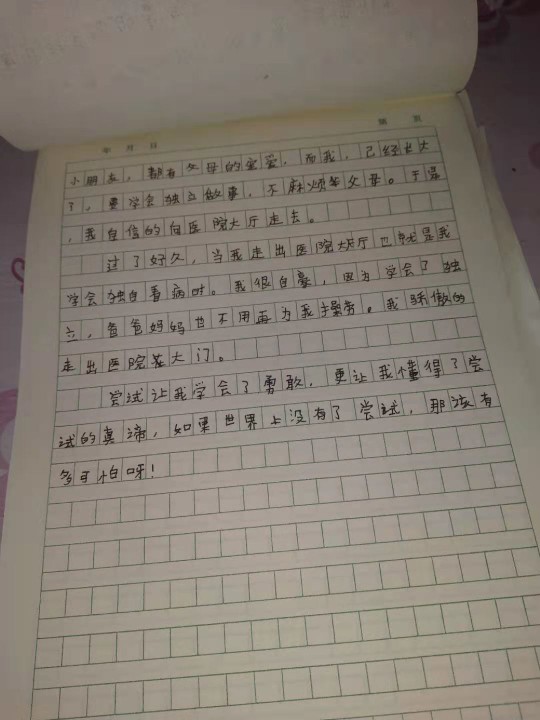 年 月 日 第 页
小朋友，都有父母的宠爱，而我，已经长大
了，要学会独立做事，不麻烦爷父母。于是
，我自信的向医院大厅走去。
过了好久，当我走出医院大厅也就是我
学会独自看病时。我很自豪，因为学会了独
立，爸爸妈妈也不用再为我操劳。我骄傲的
走出医院大门。
尝试让我学会了勇敢，更让我懂得了尝
试的真谛，如果世界上没有了尝试，那该有
多可怕呀！